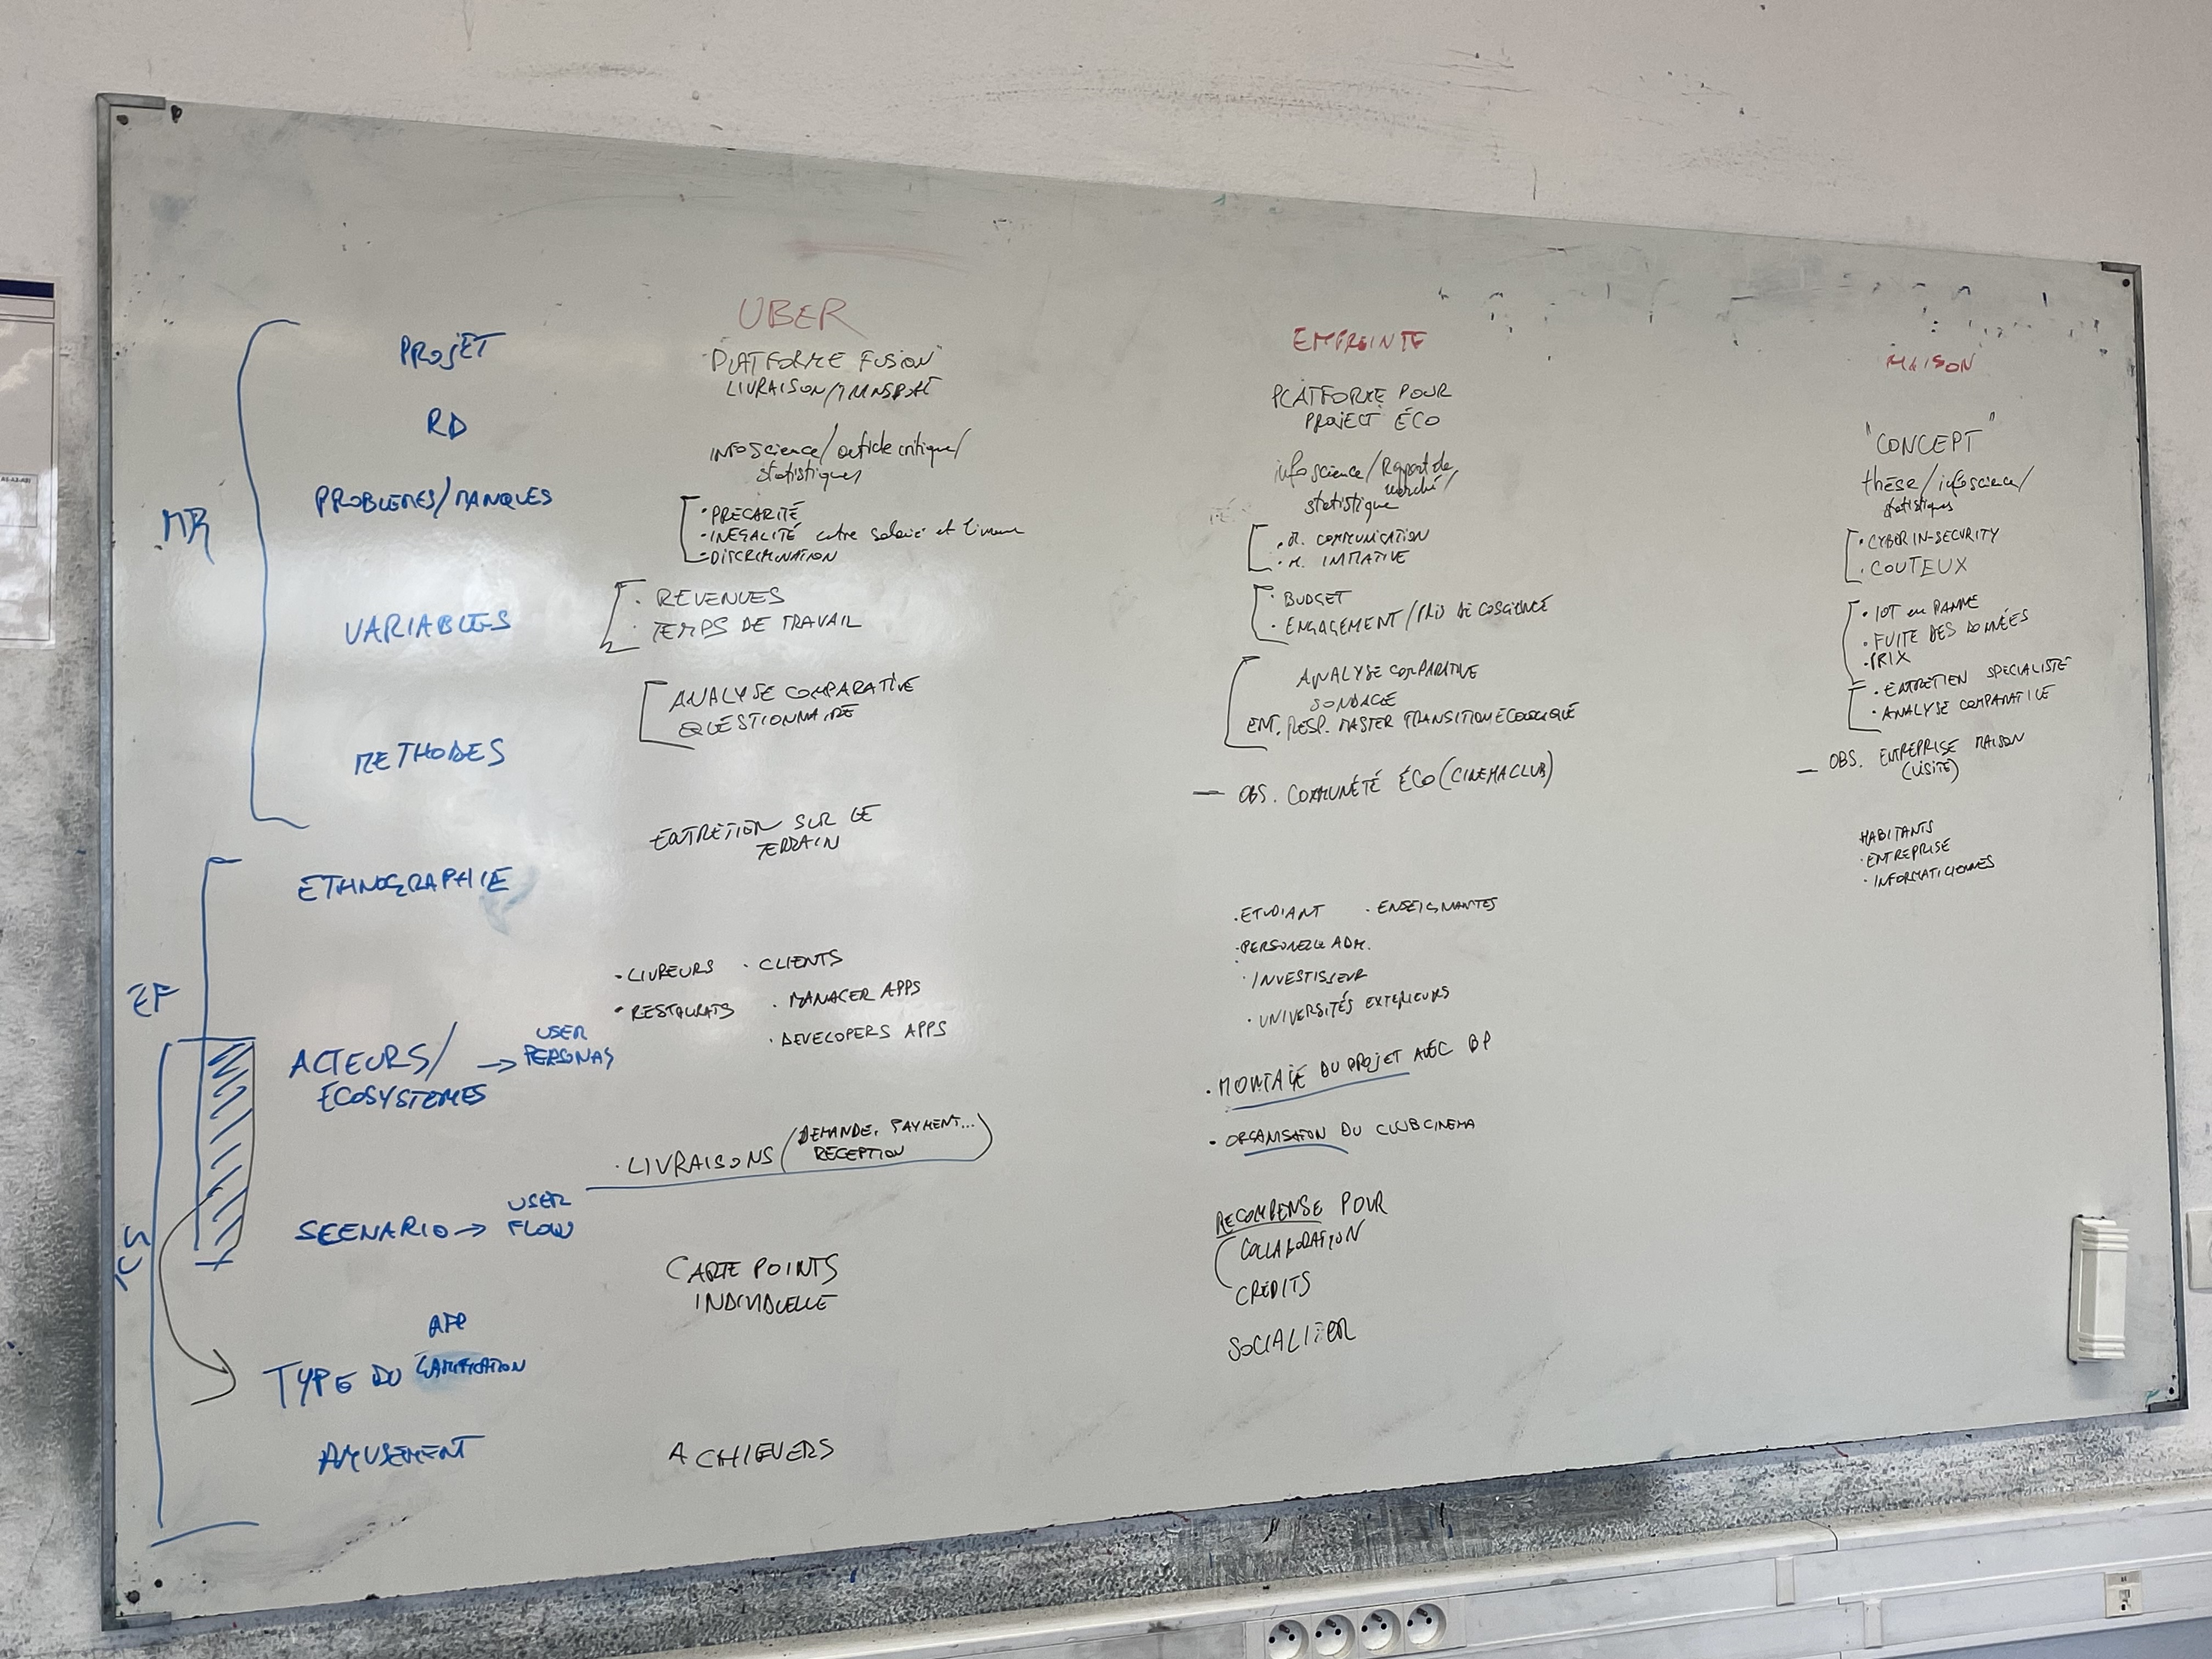 PROJET
RD
PROBLEMES/MANQUES
MR
VARIABLES
METHODES
ETHNOGRAPHIE
EF
ACTEURS/
ECOSYSTEMES
→ USER
PERSONAS
SCENARIO → USER
FLOW
APP
TYPE DU GAMIFICATION
AMUSEMENT
UBER
"PLATFORME FUSION"
LIVRAISON/TRANSPORT
INFOSCIENCE/article critique/
statistiques
• PRECARITÉ
• INEGALITÉ entre salarié et livreur
• DISCRIMINATION
• REVENUES
• TEMPS DE TRAVAIL
ANALYSE COMPARATIVE
QUESTIONNAIRE
ENTRETIEN SUR LE
TERRAIN
• LIVREURS • CLIENTS
• RESTAURATS • MANAGER APPS
• DEVELOPERS APPS
• LIVRAISONS (DEMANDE, PAYMENT...
RECEPTION)
CARTE POINTS
INDIVIDUELLE
ACHIEVERS
EMPREINTE
PLATFORME POUR
PROJECT ÉCO
infoscience/Rapport de
marché/
statistique
• M. COMMUNICATION
• M. INITIATIVE
• BUDGET
• ENGAGEMENT/PRIS DE COSCIENCE
ANALYSE COMPARATIVE
SONDAGE
ENT. RESP. MASTER TRANSITION ECOLOGIQUE
— OBS. COMMUNÉTÉ ÉCO (CINEMACLUB)
• ETUDIANT • ENSEIGNANTES
• PERSONELLE ADM.
• INVESTISSEUR
• UNIVERSITÉS EXTERIEURS
• MONTAGE DU PROJET AVEC BP
• ORGANISATION DU CLUB CINEMA
RECOMPENSE POUR
COLLABORATION
CREDITS
SOCIALIZER
MAISON
"CONCEPT"
thèse/infoscience/
statistiques
• CYBER IN-SECURITY
• COUTEUX
• IOT en PANNE
• FUITE DES DONNÉES
• PRIX
• ENTRETIEN SPECIALISTE
• ANALYSE COMPARATIVE
— OBS. ENTREPRISE MAISON
(VISITE)
HABITANTS
• ENTREPRISE
• INFORMATICIENNES